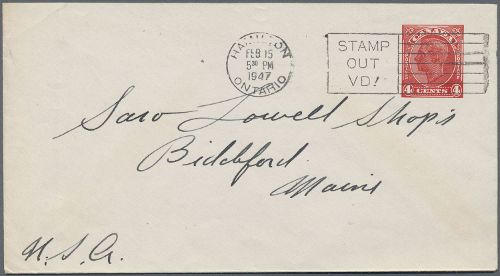 HAMILTON
FEB 15
5 30 PM
1947
ONTARIO
STAMP
OUT
VD!
CANADA
4 CENTS 4
Saco Lowell Shops
Biddeford
Maine
U.S.A.